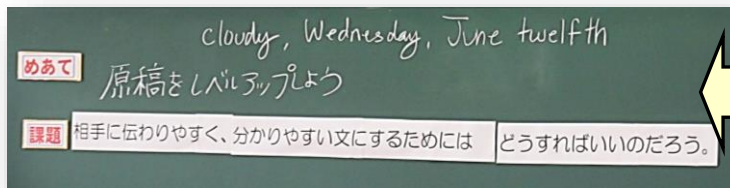 cloudy, Wednesday, June twelfth
めあて 原稿をレベルアップしよう
課題 相手に伝わりやすく、分かりやすい文にするためには どうすればいいのだろう。